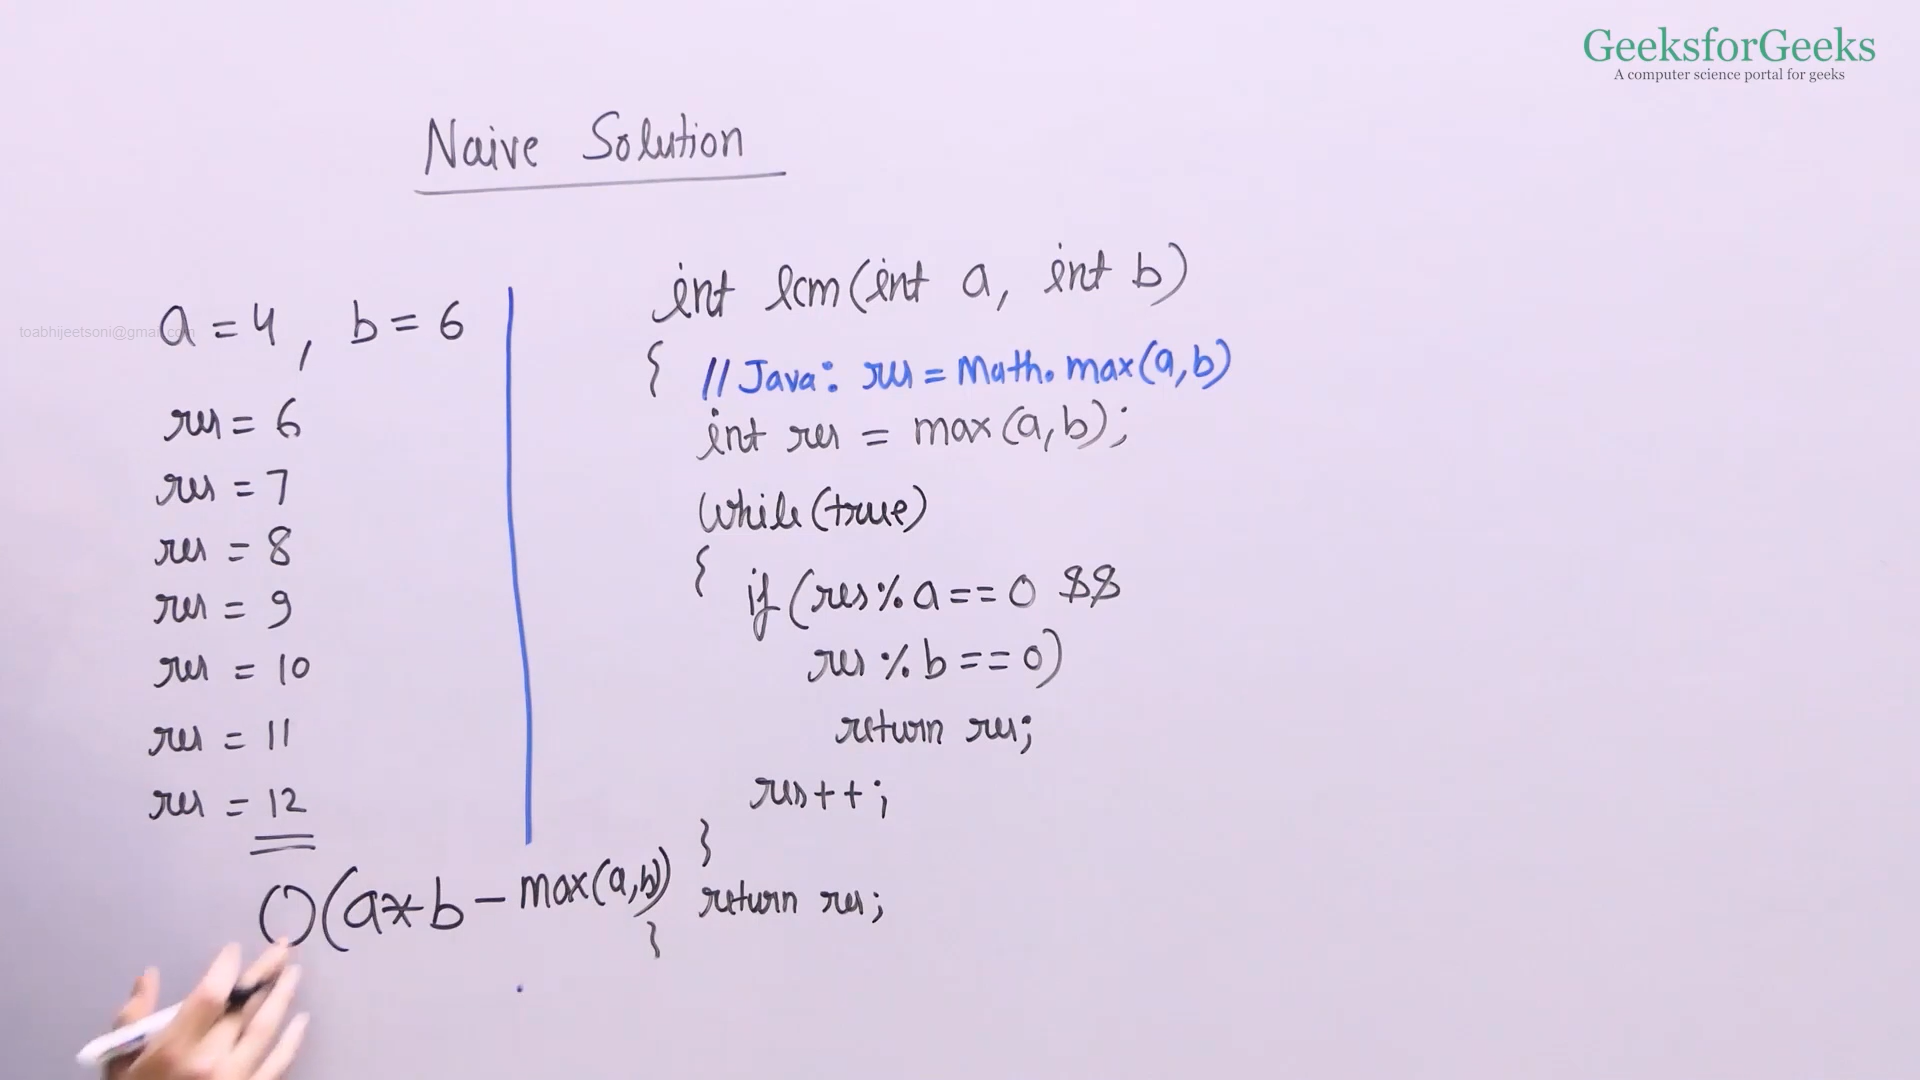 GeeksforGeeks
A computer science portal for geeks
Naive Solution
a = 4 , b = 6
res = 6
res = 7
res = 8
res = 9
res = 10
res = 11
res = 12
O(a*b - max(a,b))
int lcm(int a, int b)
{ // Java: res = Math.max(a,b)
int res = max(a,b);
while(true)
{ if (res % a == 0 &&
res % b == 0)
return res;
res++;
}
return res;
}